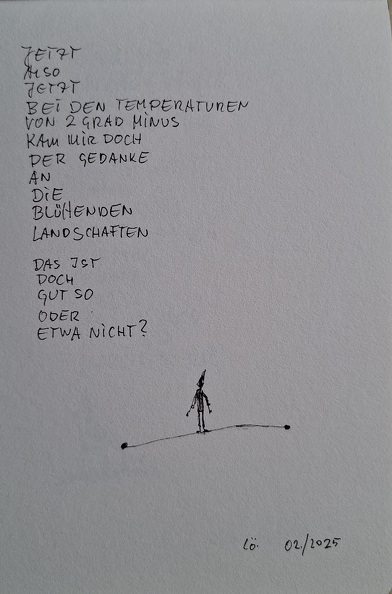 JETZT
ALSO
JETZT
BEI DEN TEMPERATUREN
VON 2 GRAD MINUS
KAM MIR DOCH
DER GEDANKE
AN
DIE
BLÜHENDEN
LANDSCHAFTEN
DAS IST
DOCH
GUT SO
ODER
ETWA NICHT?
Lö. 02/2025